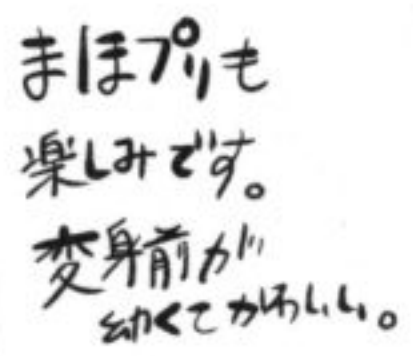 まほプリも
楽しみです。
変身前が
幼くてかわいい。